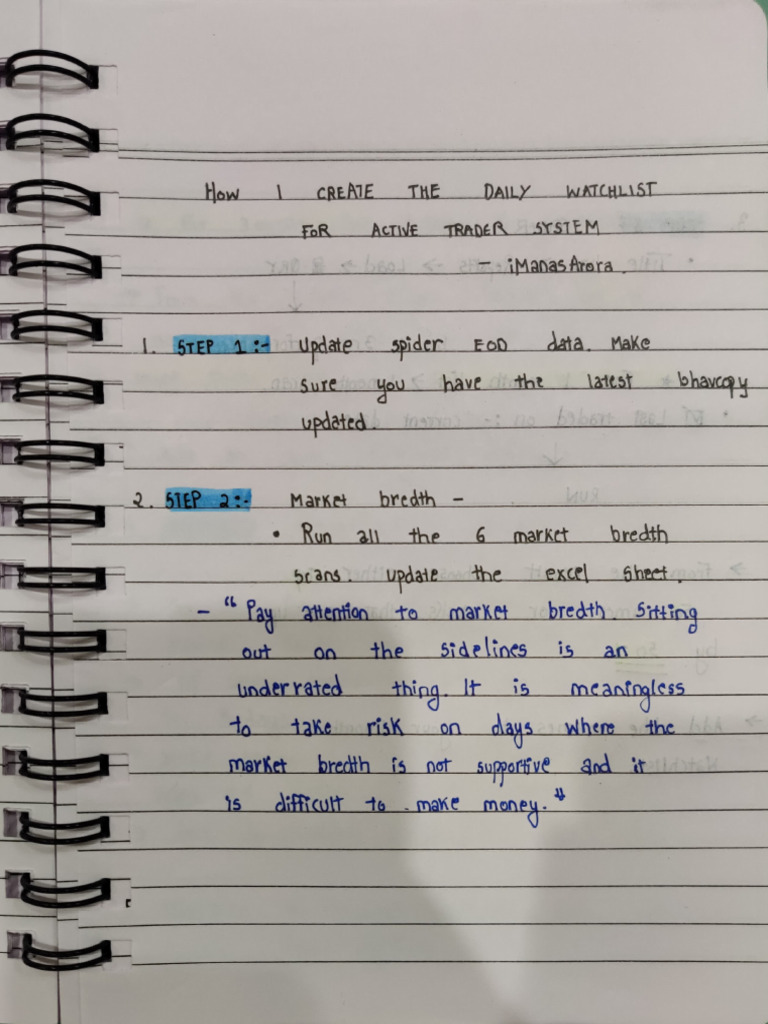 HOW I CREATE THE DAILY WATCHLIST
FOR ACTIVE TRADER SYSTEM
- iManasArora.
1. STEP 1:- Update spider EOD data. Make
sure you have the latest bhavcopy
updated.
2. STEP 2:- Market bredth -
• Run all the 6 market bredth
scans. update the excel sheet.
- "Pay attention to market bredth. Sitting
out on the sidelines is an
underrated thing. It is meaningless
to take risk on days where the
market bredth is not supportive and it
is difficult to make money."